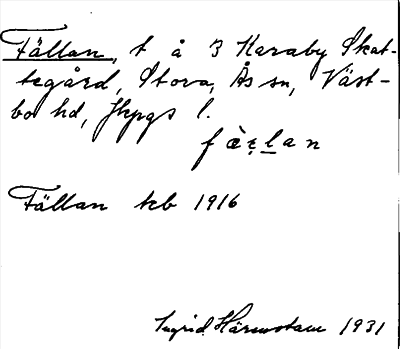 Fällan, t å 3 Karaby Skat-
tegård, Stora, Ås sn, Väst-
bo hd, Jkpgs l.
fàlan
Fällan tcb 1916
Ingrid 1931